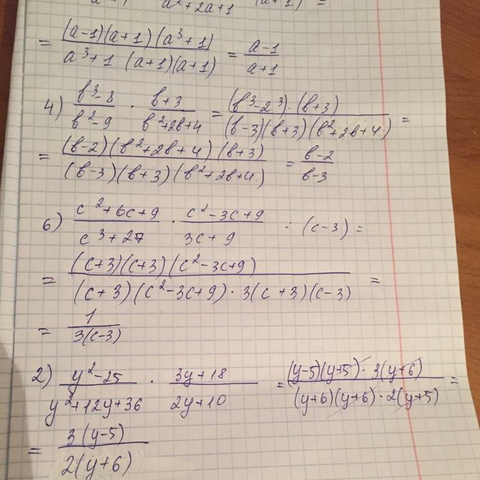 a²+2a+1
= (a-1)(a+1)(a³+1) / a³+1 (a+1)(a+1) = a-1 / a+1
4) b³-8 / b²-9 · b+3 / b²+2b+4 = (b³-2³)·(b+3) / (b-3)(b+3)(b²+2b+4) =
= (b-2)(b²+2b+4)(b+3) / (b-3)(b+3)(b²+2b+4) = b-2 / b-3
6) c²+6c+9 / c³+27 · c²-3c+9 / 3c+9 : (c-3) =
= (c+3)(c+3)(c²-3c+9) / (c+3)(c²-3c+9)·3(c+3)(c-3) =
= 1 / 3(c-3)
2) y²-25 / y²+12y+36 · 3y+18 / 2y+10 = (y-5)(y+5)·3(y+6) / (y+6)(y+6)·2(y+5) =
= 3(y-5) / 2(y+6)